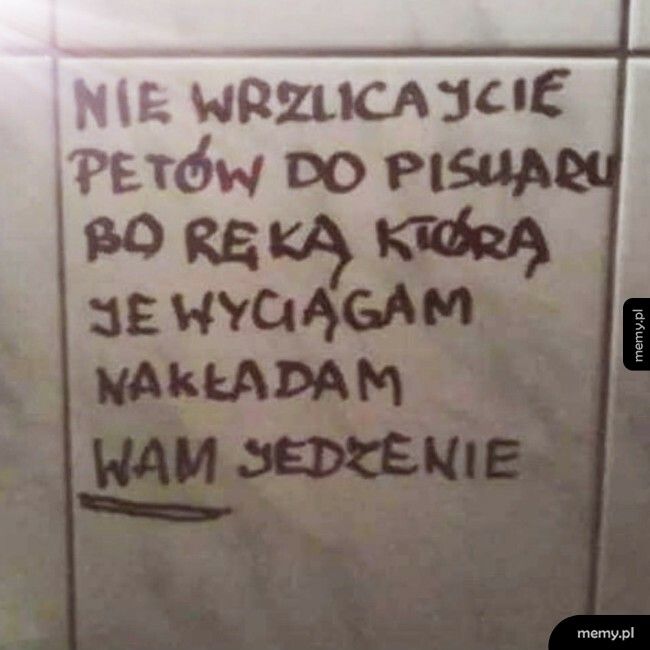 NIE WRZUCAJCIE
PETÓW DO PISUARU
BO RĘKĄ KTÓRĄ
JE WYCIĄGAM
NAKŁADAM
WAM JEDZENIE
memy.pl
memy.pl